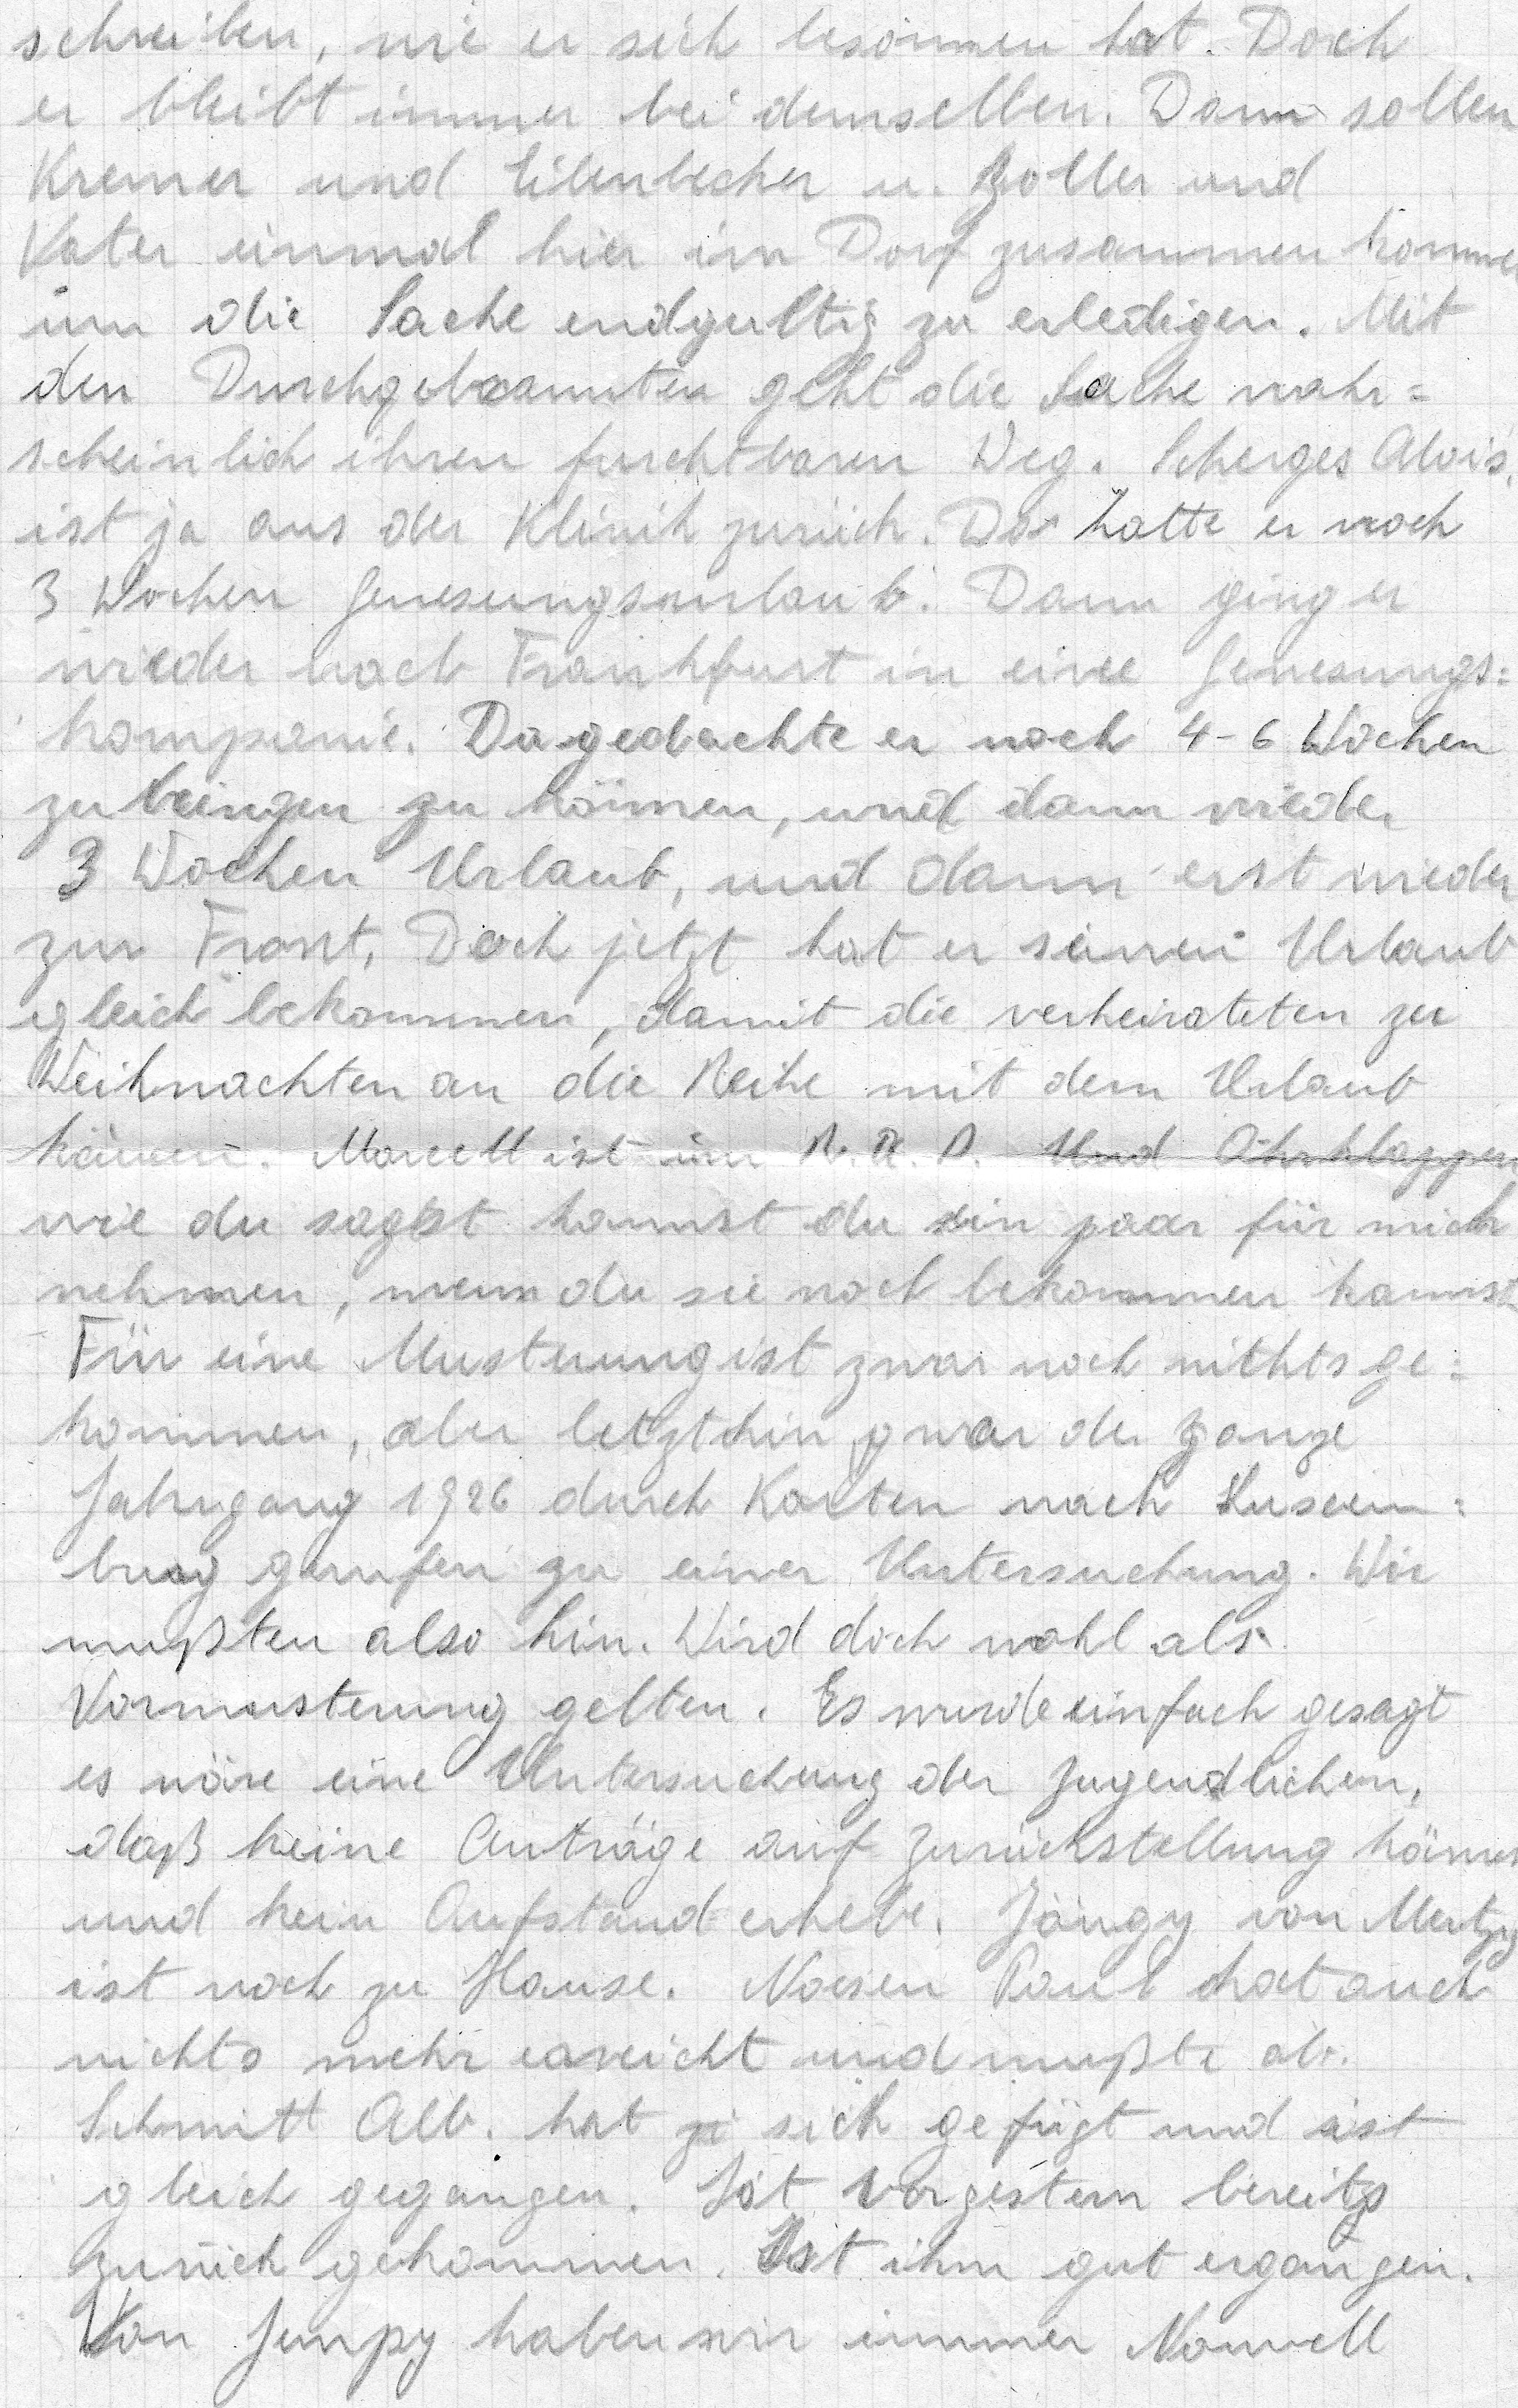 schreiben, wie er sich besonnen hat. Doch
er bleibt immer bei demselben. Dann sollen
Kremer und Eilenbecker u. Zoller und
Vater einmal hier im Dorf zusammen kommen
um die Sache endgultig zu erledigen. Mit
den Durchgebrannten geht die Sache wahr=
scheinlich ihren furchtbaren Weg. Scherges Alois,
ist ja aus der Klinik zurück. Da hatte er noch
3 Wochen Genesungsurlaub. Dann ging er
wieder nach Frankfurt in eine Genesungs=
kompanie. Da gedachte er noch 4-6 Wochen
zubringen zu können, und dann wieder
3 Wochen Urlaub, und dann erst wieder
zur Front. Doch jetzt hat er seinen Urlaub
gleich bekommen, damit die verheirateten zu
Weihnachten an die Reihe mit dem Urlaub
kämen. Marcell ist im R.A.D. Und Ohrklappen
wie du sagst kannst du ein paar für mich
nehmen, wenn du sie noch bekommen kannst
Für eine Musterung ist zwar noch nichts ge=
kommen, aber letzthin war der ganze
Jahrgang 1926 durch Karten nach Luxem=
burg gerufen zu einer Untersuchung. Wir
mußten also hin. Wird doch wohl als
Vormusterung gelten. Es wurde einfach gesagt
es wäre eine Untersuchung der Jugendlichen,
daß keine Anträge auf Zurückstellung kämen
und kein Aufstand erhebe. Jängy von Mertzig
ist noch zu Hause. Noesen Paul hat auch
nichts mehr erreicht und mußte ab.
Schmitt Alb. hat sich gefügt und ist
gleich gegangen. Ist vorgestern bereits
zurück gekommen. Ist ihm gut ergangen.
Von Jempy haben wir immer Nouvell